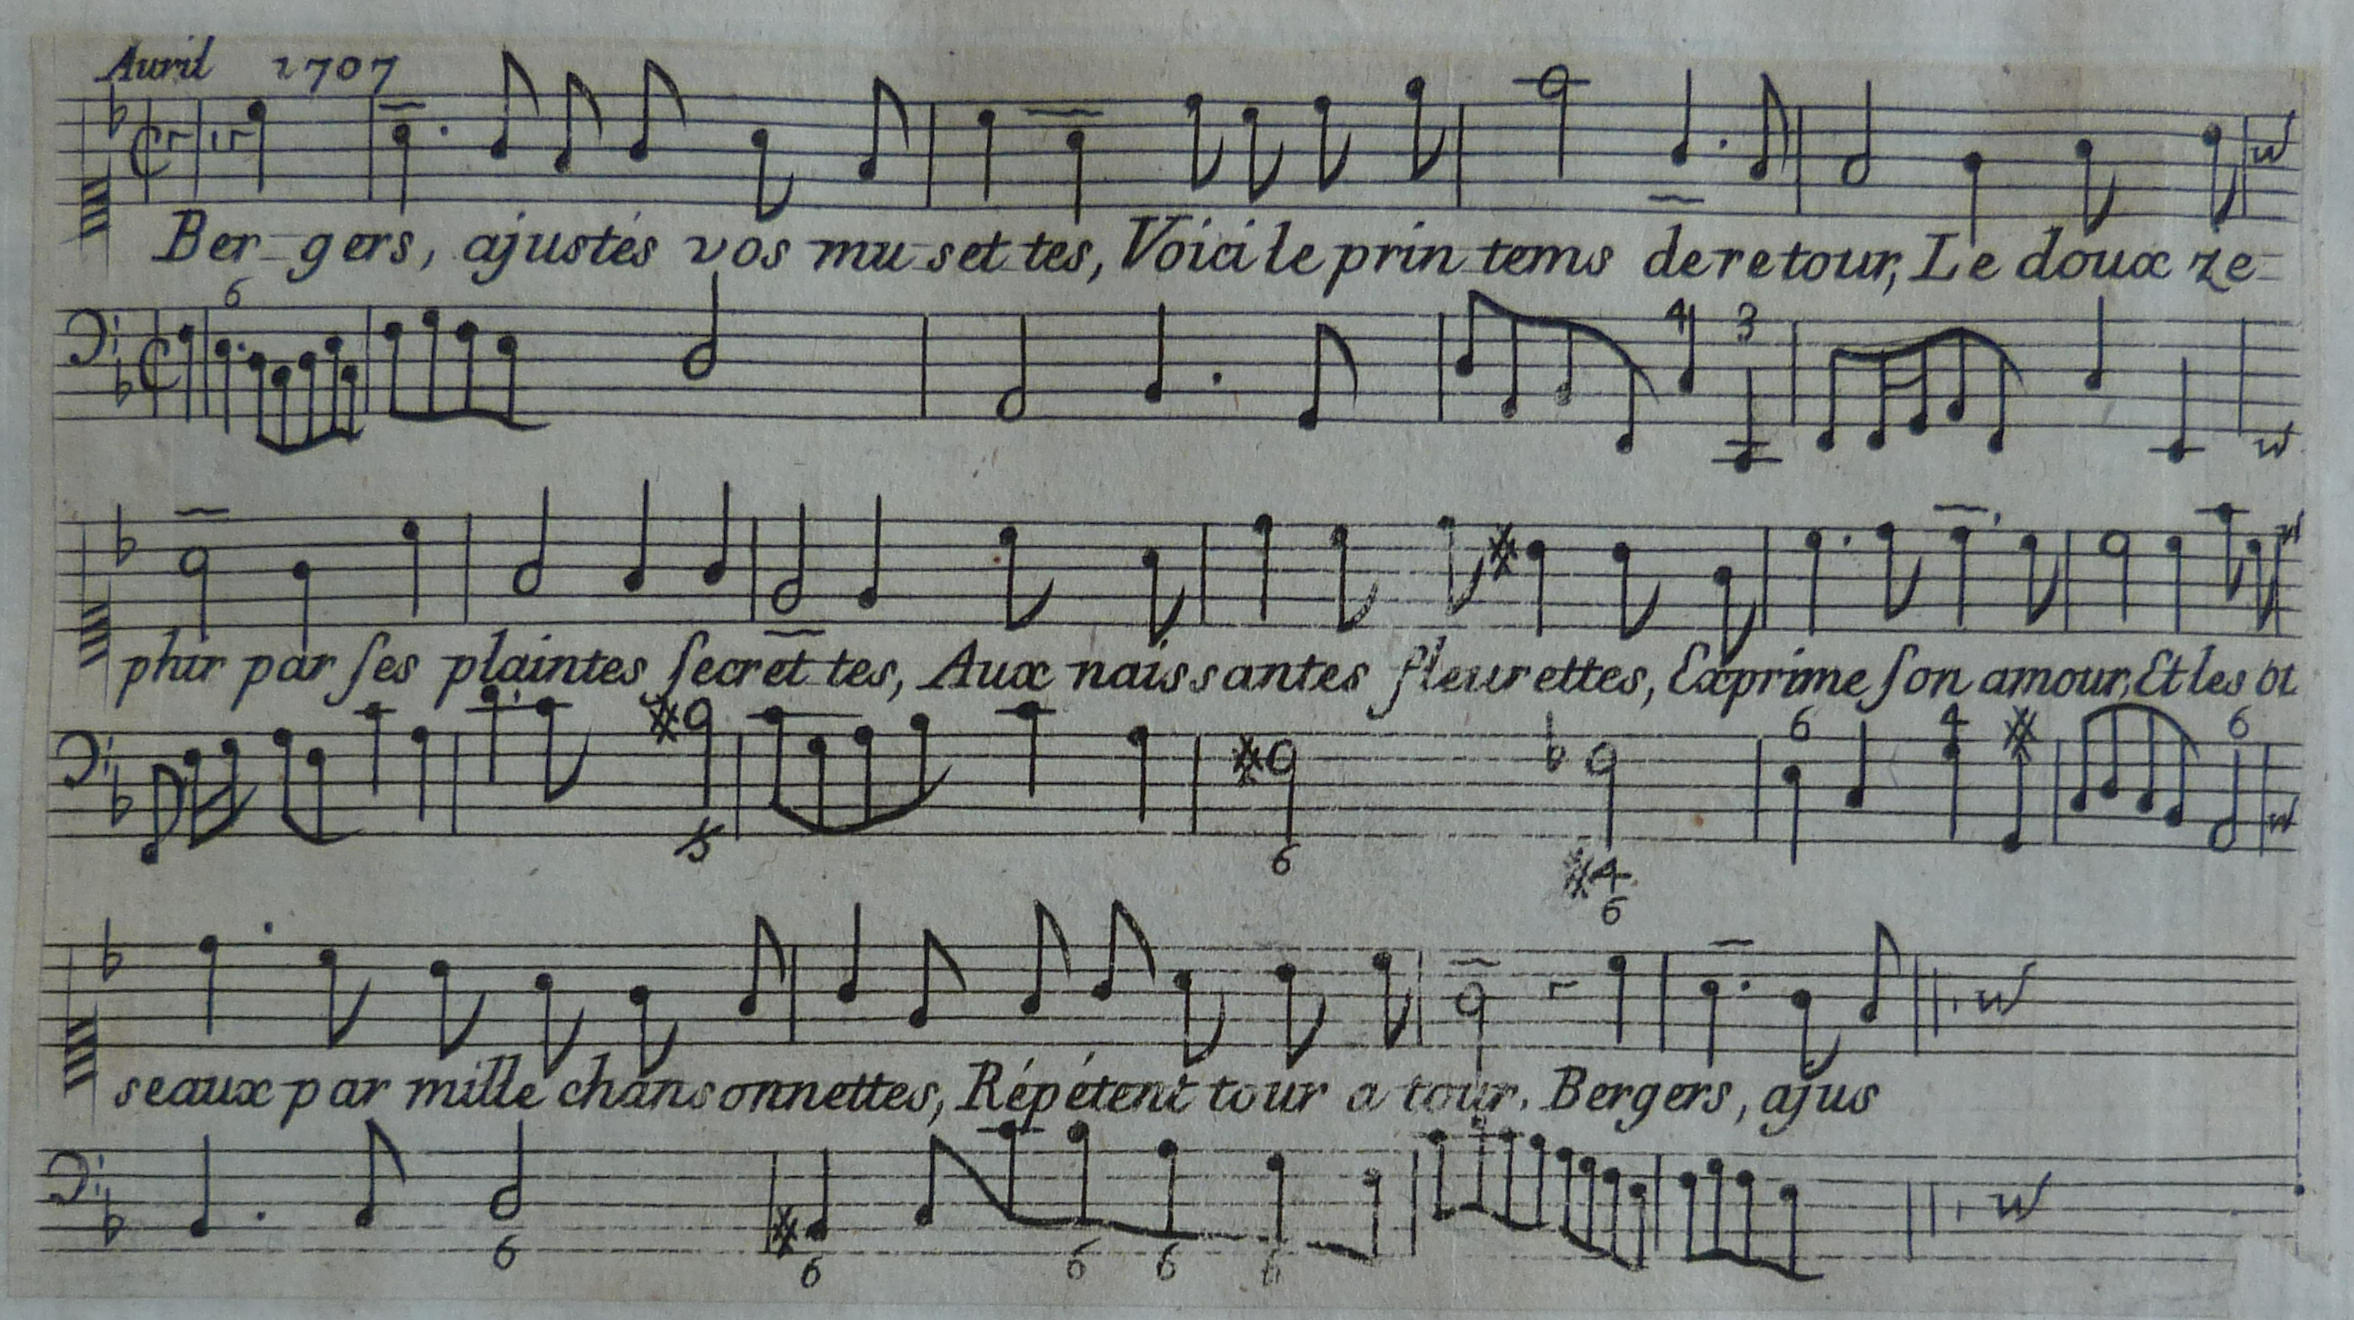 Avril 1707
Ber-gers, ajustés vos mu-set-tes, Voici le prin-tems de retour, Le doux ze-
6
4 3
phir par ſes plaintes ſecret-tes, Aux naissantes fleurettes, Exprime ſon amour, Et les oi
6 4 6
5 6
4
6
seaux par mille chansonnettes, Répétent tour a tour. Bergers, ajus
6 6 6 6 6